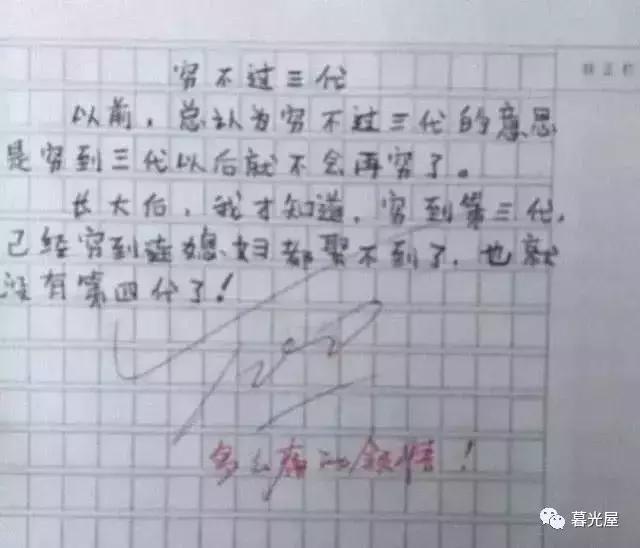 穷不过三代
以前，总认为穷不过三代的意思
是穷到三代以后就不会再穷了。
长大后，我才知道，穷到第三代，
已经穷到连媳妇都娶不到了，也就
没有第四代了！
100
多么痛的领悟！
暮光屋